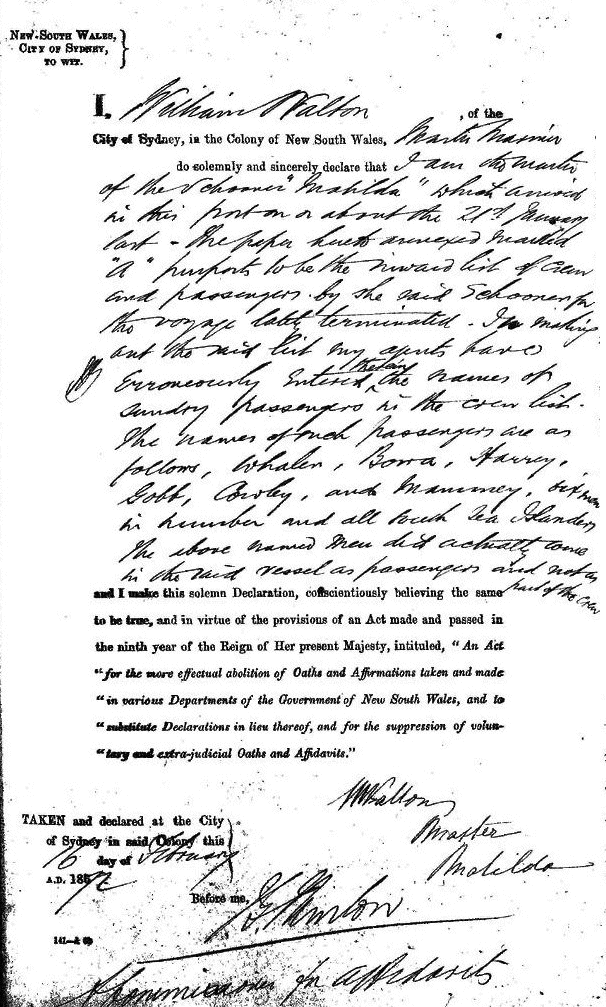 NEW-SOUTH WALES,
CITY OF SYDNEY,
TO WIT.
I, William Walton, of the
City of Sydney, in the Colony of New South Wales, Master Mariner
do solemnly and sincerely declare that I am the master
of the Schooner "Matilda" which arrived
in this port on or about the 21st January
last - The paper hereto annexed marked
"A" purports to be the inward list of crew
and passengers by the said Schooner for
the voyage lately terminated - In making
out the said list my agents have
erroneously entered therein the names of
sundry passengers in the crew list.
The names of such passengers are as
follows, Whalen, Bowa, Harrey,
Gobb, Cowley, and Mammey, six men
in number and all South Sea Islanders
The above named men did actually come
in the said vessel as passengers and not as
part of the crew
and I make this solemn Declaration, conscientiously believing the same
to be true, and in virtue of the provisions of an Act made and passed in
the ninth year of the Reign of Her present Majesty, intituled, "An Act
"for the more effectual abolition of Oaths and Affirmations taken and made
"in various Departments of the Government of New South Wales, and to
"substitute Declarations in lieu thereof, and for the suppression of volun-
"tary and extra-judicial Oaths and Affidavits."
W Walton
Master
Matilda
TAKEN and declared at the City
of Sydney in said Colony this
16 day of February
A.D. 1872
Before me,
141—
A Commissioner for Affidavits